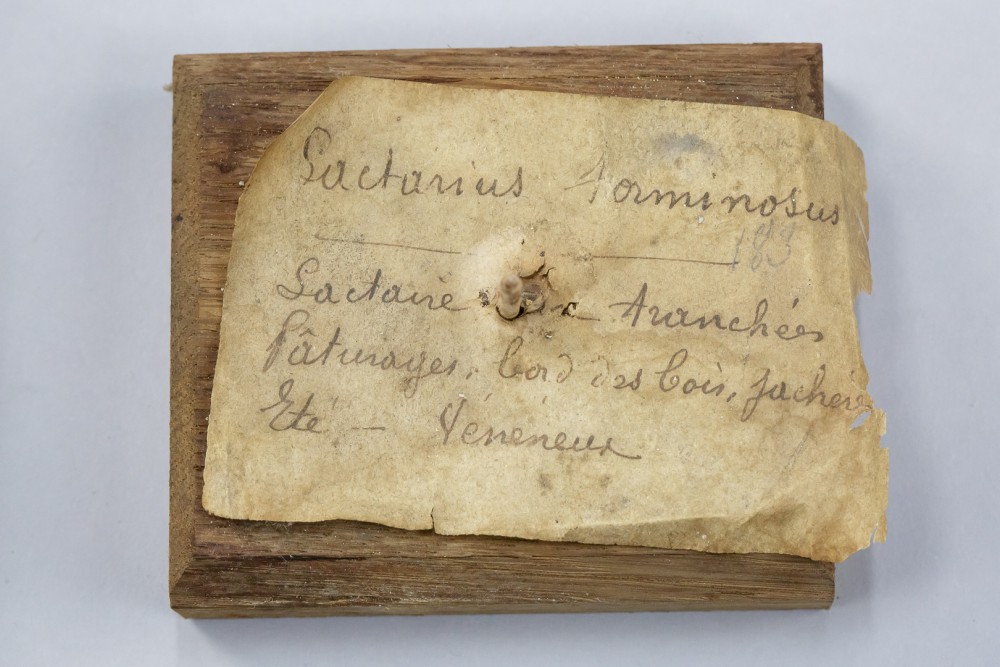 Lactarius torminosus
183
Lactaire aux tranchées
Pâturages, bord des bois, jachères
Eté - Vénéneux